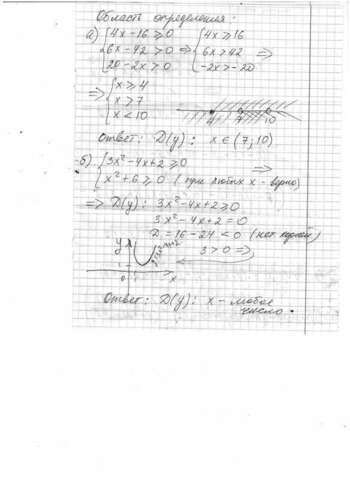 Область определения:
а) { 4x - 16 ≥ 0 { 4x ≥ 16
{ 6x - 42 > 0 ⇒ { 6x > 42 ⇒
{ 20 - 2x > 0 { -2x > -20
⇒ { x ≥ 4
{ x > 7
{ x < 10
4 7 10
Ответ: D(y): x ∈ (7; 10)
б) { 3x² - 4x + 2 ≥ 0 ⇒
{ x² + 6 ≥ 0 (при любых x - верно)
⇒ D(y): 3x² - 4x + 2 ≥ 0
3x² - 4x + 2 = 0
D = 16 - 24 < 0 (нет корней)
3 > 0 ⇒
y
1
0 1 x
Ответ: D(y): x - любое
число.